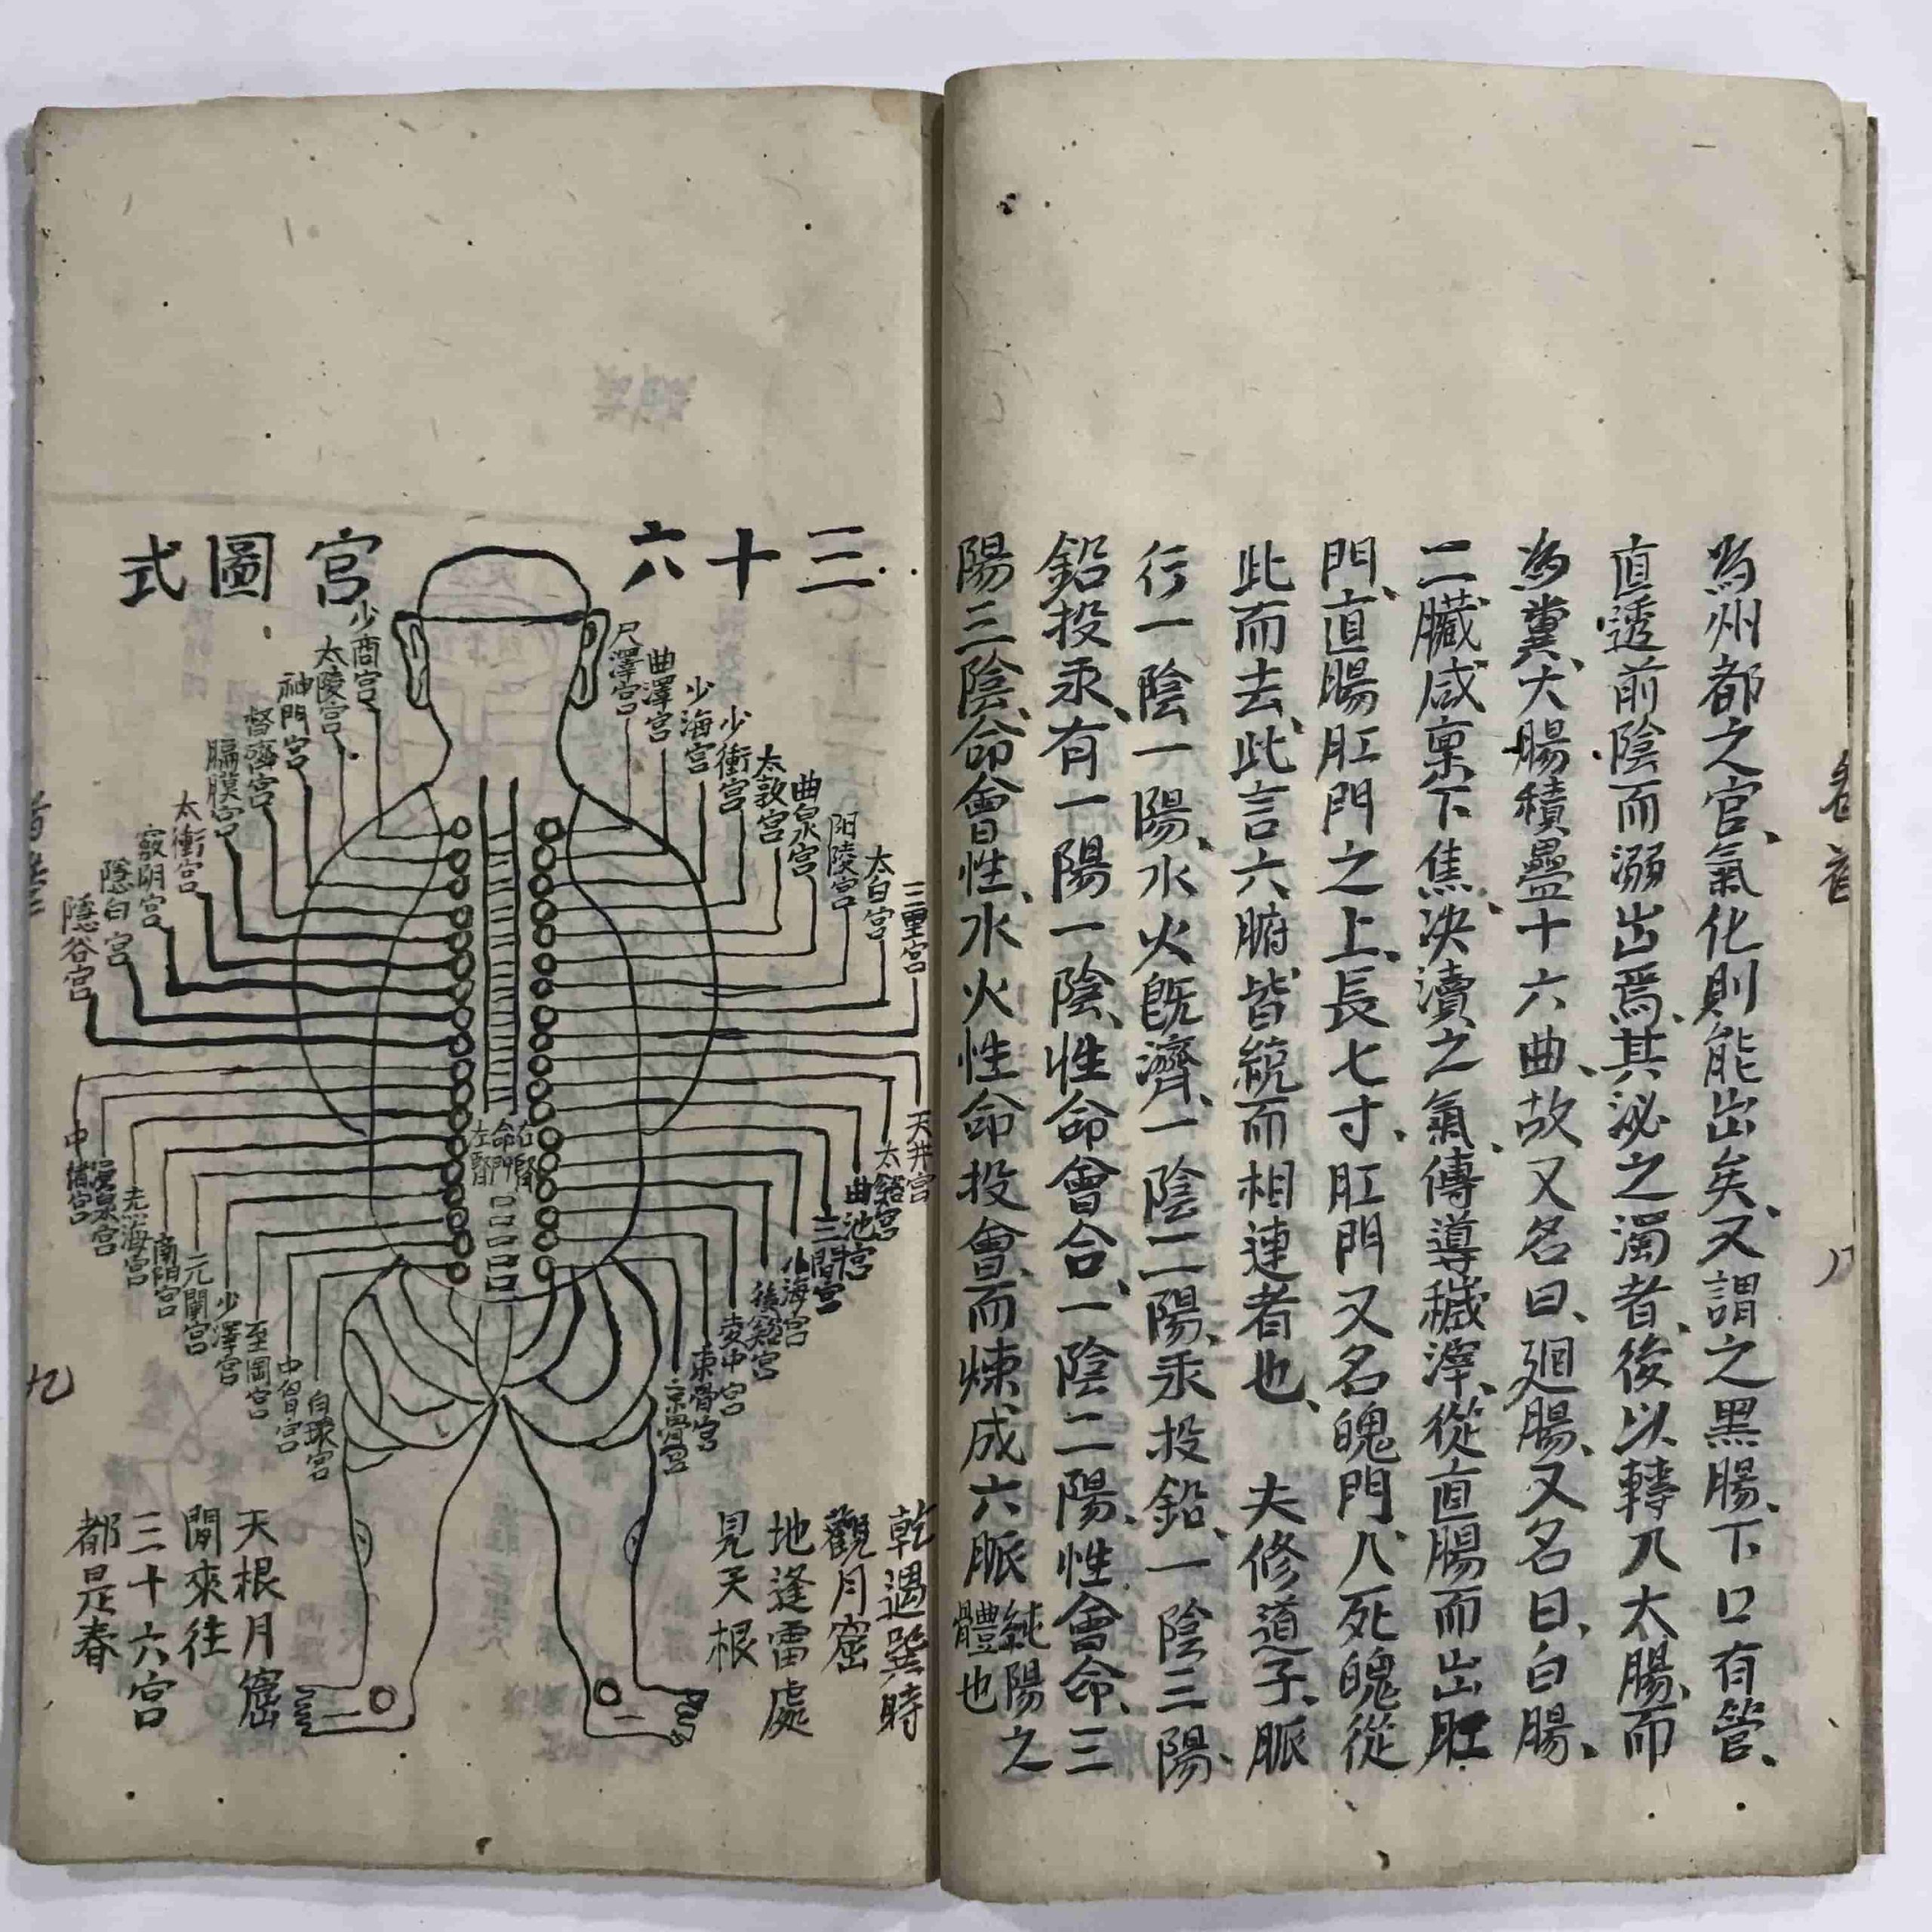 卷首
八
為州都之官、氣化則能出矣、又謂之黑腸、下口有管、
直透前陰而溺出焉、其泌之濁者、後以轉入太腸、而
為糞、大腸積疊十六曲、故又名曰、廻腸、又名曰、白腸、
二臟咸稟下焦、決瀆之氣、傳導穢滓、從直腸而出肛
門、直腸肛門之上、長七寸、肛門又名魄門、人死魄從
此而去、此言六腑皆統而相連者也、 夫修道子、脈
行一陰一陽、水火既濟、一陰二陽、汞投鉛、一陰三陽、
鉛投汞、有一陽一陰、性命會合、一陰二陽、性會命、三
陽三陰、命會性、水火性命投會、而煉成六脈 純陽之
體也
三十六宮圖式
尺澤宮
曲澤宮
少海宮
少衝宮
太敦宮
曲泉宮
阳陵宮
太白宮
三里宮
少商宮
太陵宮
神門宮
督齊宮
膈膜宮
太衝宮
竅明宮
隱白宮
隱谷宮
右腎
命門
左腎
天井宮
太谿宮
曲池宮
三間宮
小海宮
後谿宮
委中宮
束骨宮
京骨宮
中渚宮
湧泉宮
南阳宮
元關宮
少澤宮
至固宮
白環宮
乾遇巽時
觀月窟
地逢雷處
見天根
天根月窟
閒來往
三十六宮
都是春
九